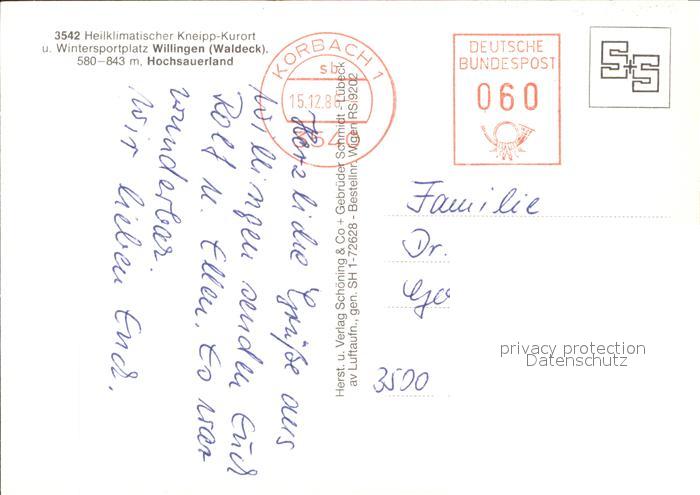 3542 Heilklimatischer Kneipp-Kurort
u. Wintersportplatz Willingen (Waldeck).
580–843 m, Hochsauerland
Herzliche Grüße aus
Willingen senden Euch
Rolf u. Ellen. Es war
wunderbar.
Wir lieben Euch.
Herst. u. Verlag Schöning & Co + Gebrüder Schmidt - Lübeck
av Luftaufn., gen. SH 1-72628 - Bestellnr. Wigen RS 9202
KORBACH 1
sb
15.12.86
DEUTSCHE
BUNDESPOST
060
S+S
Familie
Dr.
3500
privacy protection
Datenschutz